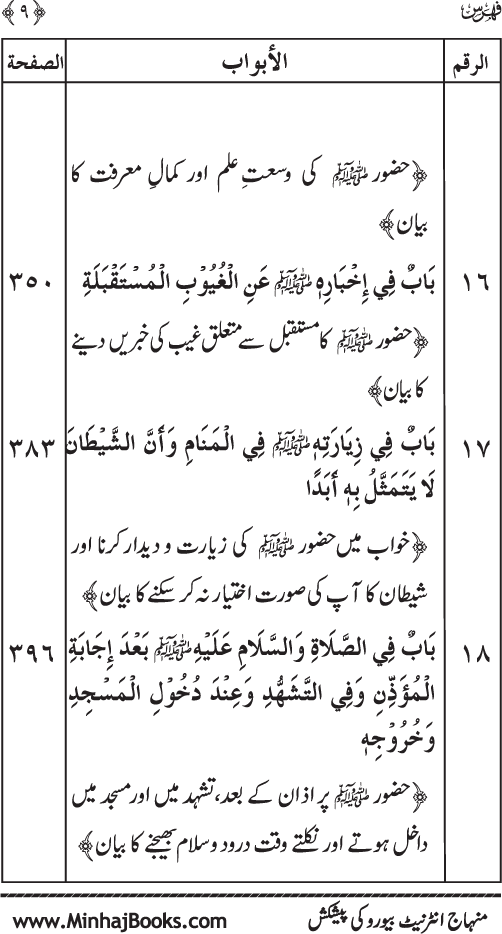 فہرس ﴿٩﴾
الرقم الأبواب الصفحة
﴿حضور ﷺ کی وسعتِ علم اور کمالِ معرفت کا
بیان﴾
١٦ بَابٌ فِي إِخْبَارِهِ ﷺ عَنِ الْغُيُوْبِ الْمُسْتَقْبَلَةِ ٣٥٠
﴿حضور ﷺ کا مستقبل سے متعلق غیب کی خبریں دینے
کا بیان﴾
١٧ بَابٌ فِي زِيَارَتِهِ ﷺ فِي الْمَنَامِ وَأَنَّ الشَّيْطَانَ ٣٨٣
لَا يَتَمَثَّلُ بِهِ أَبَدًا
﴿خواب میں حضور ﷺ کی زیارت و دیدار کرنا اور
شیطان کا آپ کی صورت اختیار نہ کر سکنے کا بیان﴾
١٨ بَابٌ فِي الصَّلَاةِ وَالسَّلَامِ عَلَيْهِ ﷺ بَعْدَ إِجَابَةِ ٣٩٦
الْمُؤَذِّنِ وَفِي التَّشَهُّدِ وَعِنْدَ دُخُوْلِ الْمَسْجِدِ
وَخُرُوْجِهِ
﴿حضور ﷺ پر اذان کے بعد، تشہد میں اور مسجد میں
داخل ہوتے اور نکلتے وقت درود و سلام بھیجنے کا بیان﴾
منہاج انٹرنیٹ بیورو کی پیشکش www.MinhajBooks.com